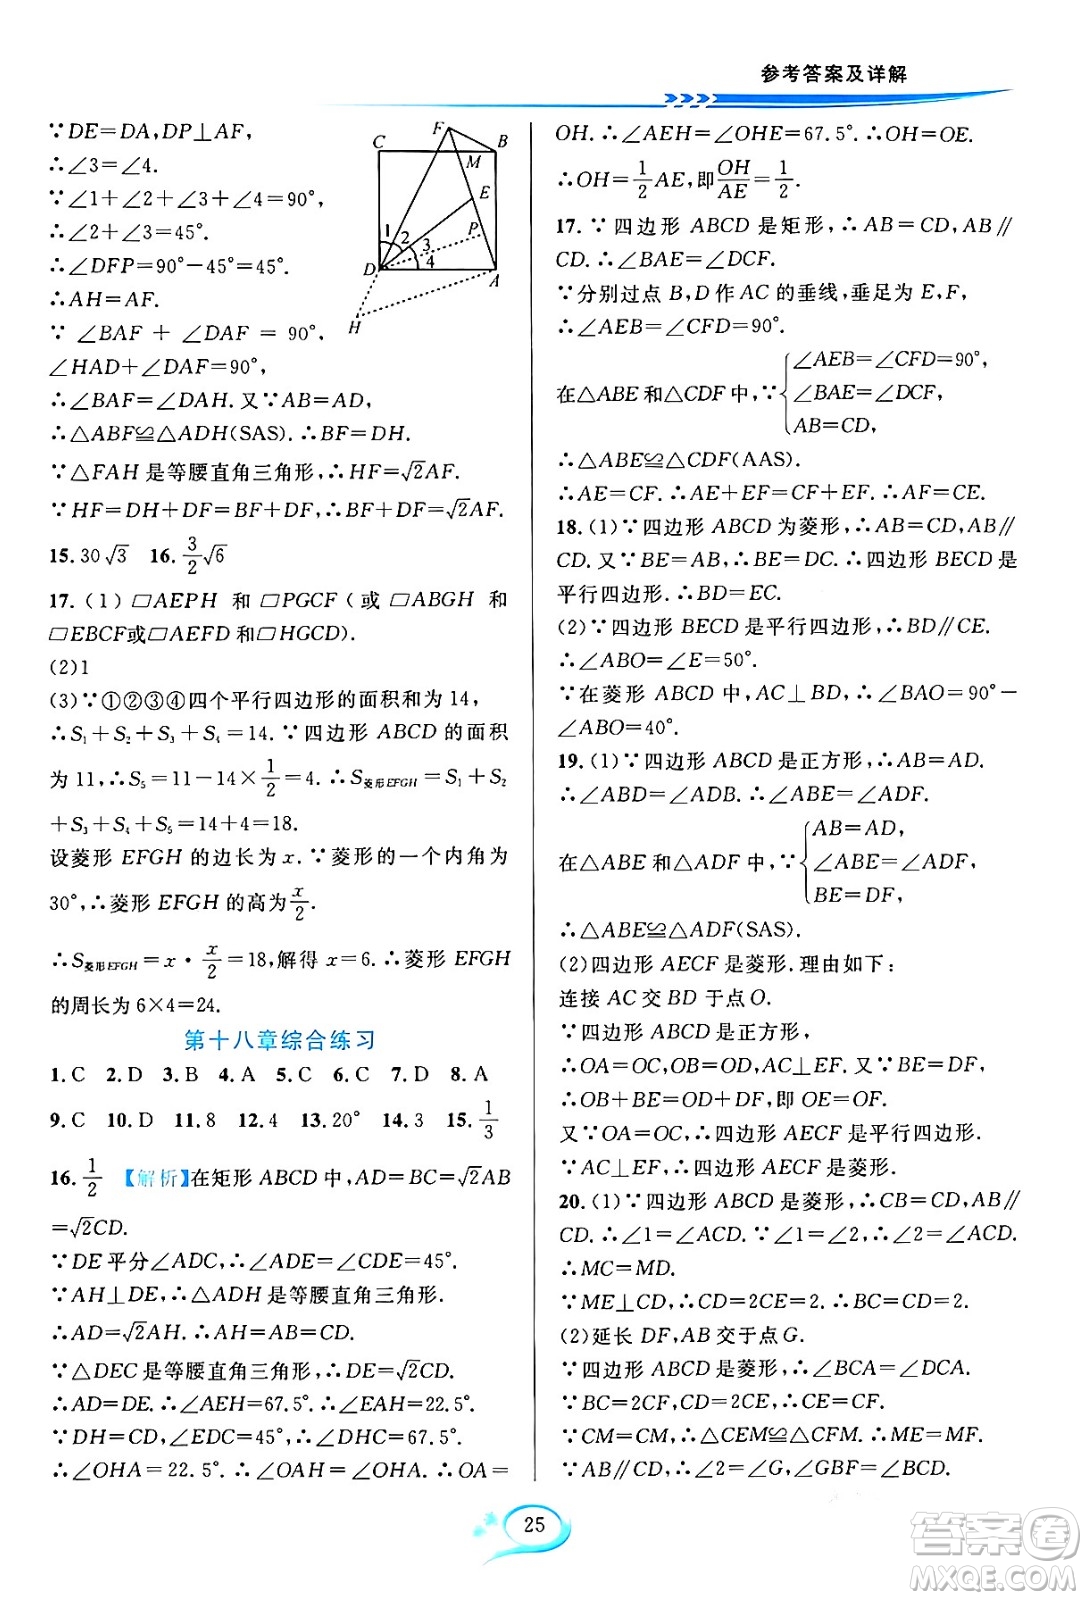 参考答案及详解
∵DE=DA,DP⊥AF,
∴∠3=∠4.
∵∠1+∠2+∠3+∠4=90°,
∴∠2+∠3=45°.
∴∠DFP=90°-45°=45°.
∴AH=AF.
∵ ∠BAF + ∠DAF = 90°,
∠HAD+∠DAF=90°,
∴∠BAF=∠DAH.又∵AB=AD,
∴△ABF≌△ADH(SAS).∴BF=DH.
∵△FAH 是等腰直角三角形,∴HF=√2AF.
∵HF=DH+DF=BF+DF,∴BF+DF=√2AF.
F
C
B
M
E
P
1
2
3
4
D
A
H
15. 30√3 16. 3/2√6
17. (1) ▱AEPH 和 ▱PGCF(或 ▱ABGH 和
▱EBCF或▱AEFD 和▱HGCD).
(2)1
(3)∵①②③④四个平行四边形的面积和为 14,
∴S₁+S₂+S₃+S₄=14.∵四边形 ABCD 的面积
为 11,∴S₅=11-14×1/2=4.∴S菱形EFGH=S₁+S₂
+S₃+S₄+S₅=14+4=18.
设菱形 EFGH 的边长为 x.∵菱形的一个内角为
30°,∴菱形 EFGH 的高为x/2.
∴S菱形EFGH=x·x/2=18,解得 x=6.∴菱形 EFGH
的周长为 6×4=24.
第十八章综合练习
1. C 2. D 3. B 4. A 5. C 6. C 7. D 8. A
9. C 10. D 11. 8 12. 4 13. 20° 14. 3 15. 1/3
16. 1/2 【解析】在矩形 ABCD 中,AD=BC=√2AB
=√2CD.
∵DE 平分∠ADC,∴∠ADE=∠CDE=45°.
∵AH⊥DE,∴△ADH 是等腰直角三角形.
∴AD=√2AH.∴AH=AB=CD.
∵△DEC 是等腰直角三角形,∴DE=√2CD.
∴AD=DE.∴∠AEH=67.5°.∴∠AEH=22.5°.
∵DH=CD,∠EDC=45°,∴∠DHC=67.5°.
∴∠OHA=22.5°.∴∠OAH=∠OHA.∴OA=
OH.∴∠AEH=∠OHE=67.5°.∴OH=OE.
∴OH=1/2AE,即OH/AE=1/2.
17. ∵四边形 ABCD 是矩形,∴AB=CD,AB∥
CD.∴∠BAE=∠DCF.
∵分别过点 B,D 作 AC 的垂线,垂足为 E,F,
∴∠AEB=∠CFD=90°.
在△ABE 和△CDF 中,∵{∠AEB=∠CFD=90°,
∠BAE=∠DCF,
AB=CD,
∴△ABE≌△CDF(AAS).
∴AE=CF.∴AE+EF=CF+EF.∴AF=CE.
18. (1)∵四边形 ABCD 为菱形,∴AB=CD,AB∥
CD.又∵BE=AB,∴BE=DC.∴四边形 BECD 是
平行四边形.∴BD=EC.
(2)∵四边形 BECD 是平行四边形,∴BD∥CE.
∴∠ABO=∠E=50°.
∵在菱形 ABCD 中,AC⊥BD,∴∠BAO=90°-
∠ABO=40°.
19. (1)∵四边形 ABCD 是正方形,∴AB=AD.
∴∠ABD=∠ADB.∴∠ABE=∠ADF.
在△ABE 和△ADF 中,∵{AB=AD,
∠ABE=∠ADF,
BE=DF,
∴△ABE≌△ADF(SAS).
(2)四边形 AECF 是菱形.理由如下:
连接 AC 交 BD 于点 O.
∵四边形 ABCD 是正方形,
∴OA=OC,OB=OD,AC⊥EF.又∵BE=DF,
∴OB+BE=OD+DF,即 OE=OF.
又∵OA=OC,∴四边形 AECF 是平行四边形.
∵AC⊥EF,∴四边形 AECF 是菱形.
20. (1)∵四边形 ABCD 是菱形,∴CB=CD,AB∥
CD.∴∠1=∠ACD.∵∠1=∠2,∴∠2=∠ACD.
∴MC=MD.
∵ME⊥CD,∴CD=2CE=2.∴BC=CD=2.
(2)延长 DF,AB 交于点 G.
∵四边形 ABCD 是菱形,∴∠BCA=∠DCA.
∵BC=2CF,CD=2CE,∴CE=CF.
∵CM=CM,∴△CEM≌△CFM.∴ME=MF.
∵AB∥CD,∴∠2=∠G,∠GBF=∠BCD.
25
答案卷
MXQE.COM